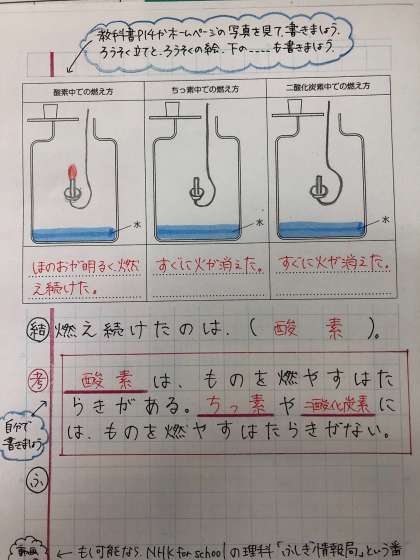 教科書P14やホームページの写真を見て、書きましょう。
ろうそく立てと、ろうそくの絵、下の----も書きましょう。
酸素中での燃え方
ちっ素中での燃え方
二酸化炭素中での燃え方
水
水
水
ほのおが明るく燃
え続けた。
すぐに火が消えた。
すぐに火が消えた。
結 燃え続けたのは、( 酸 素 )。
考 酸素は、ものを燃やすはた
らきがある。ちっ素や二酸化炭素に
は、ものを燃やすはたらきがない。
自分で
書きましょう
ふ
動画
← もし可能なら、NHK for schoolの理科「ふしぎ情報局」という番